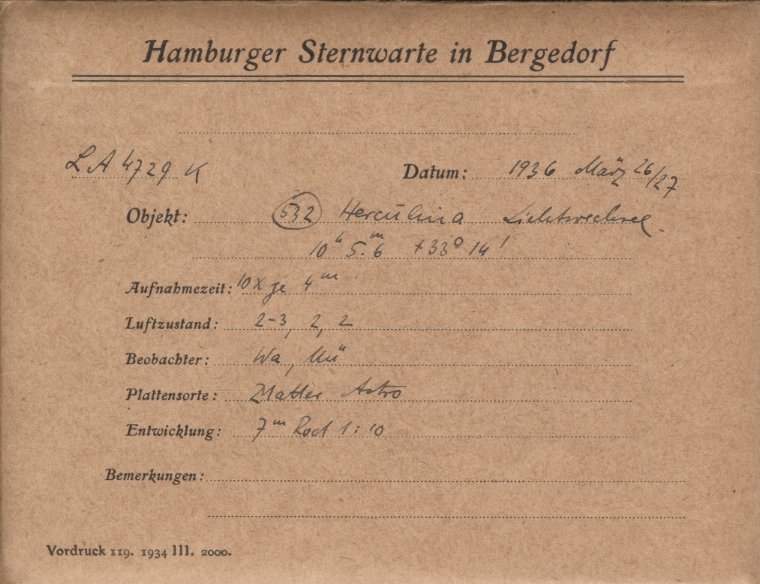 Hamburger Sternwarte in Bergedorf
LA 4729 K Datum: 1936 März 26/27
Objekt: (532) Herculina Lichtwechsel
10ʰ 5.ᵐ6 +33° 14'
Aufnahmezeit: 10x je 4ᵐ
Luftzustand: 2-3, 2, 2
Beobachter: Wa, Mü
Plattensorte: Astro
Entwicklung: 7ᵐ Rod 1:10
Bemerkungen:
Vordruck 119. 1934 III. 2000.